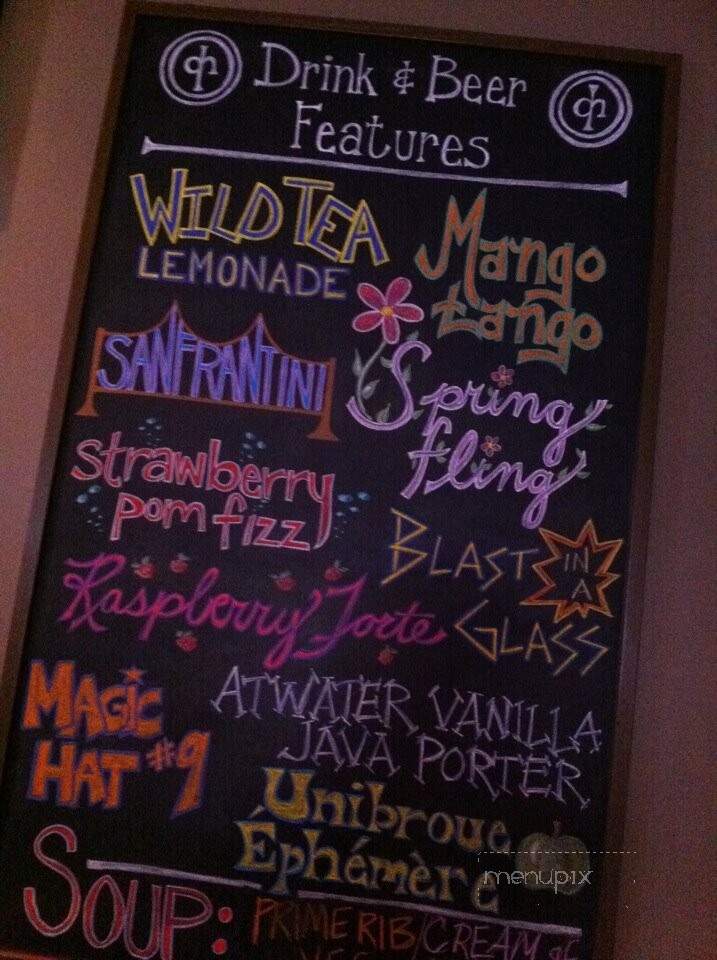 Drink & Beer
Features
WILD TEA
LEMONADE
Mango
tango
SANFRANTINI
Spring
fling
strawberry
pom fizz
BLAST IN A
GLASS
Raspberry Torte
MAGIC
HAT #9
ATWATER VANILLA
JAVA PORTER
Unibroue
Éphémère
menupix
SOUP: PRIME RIB/CREAM OF